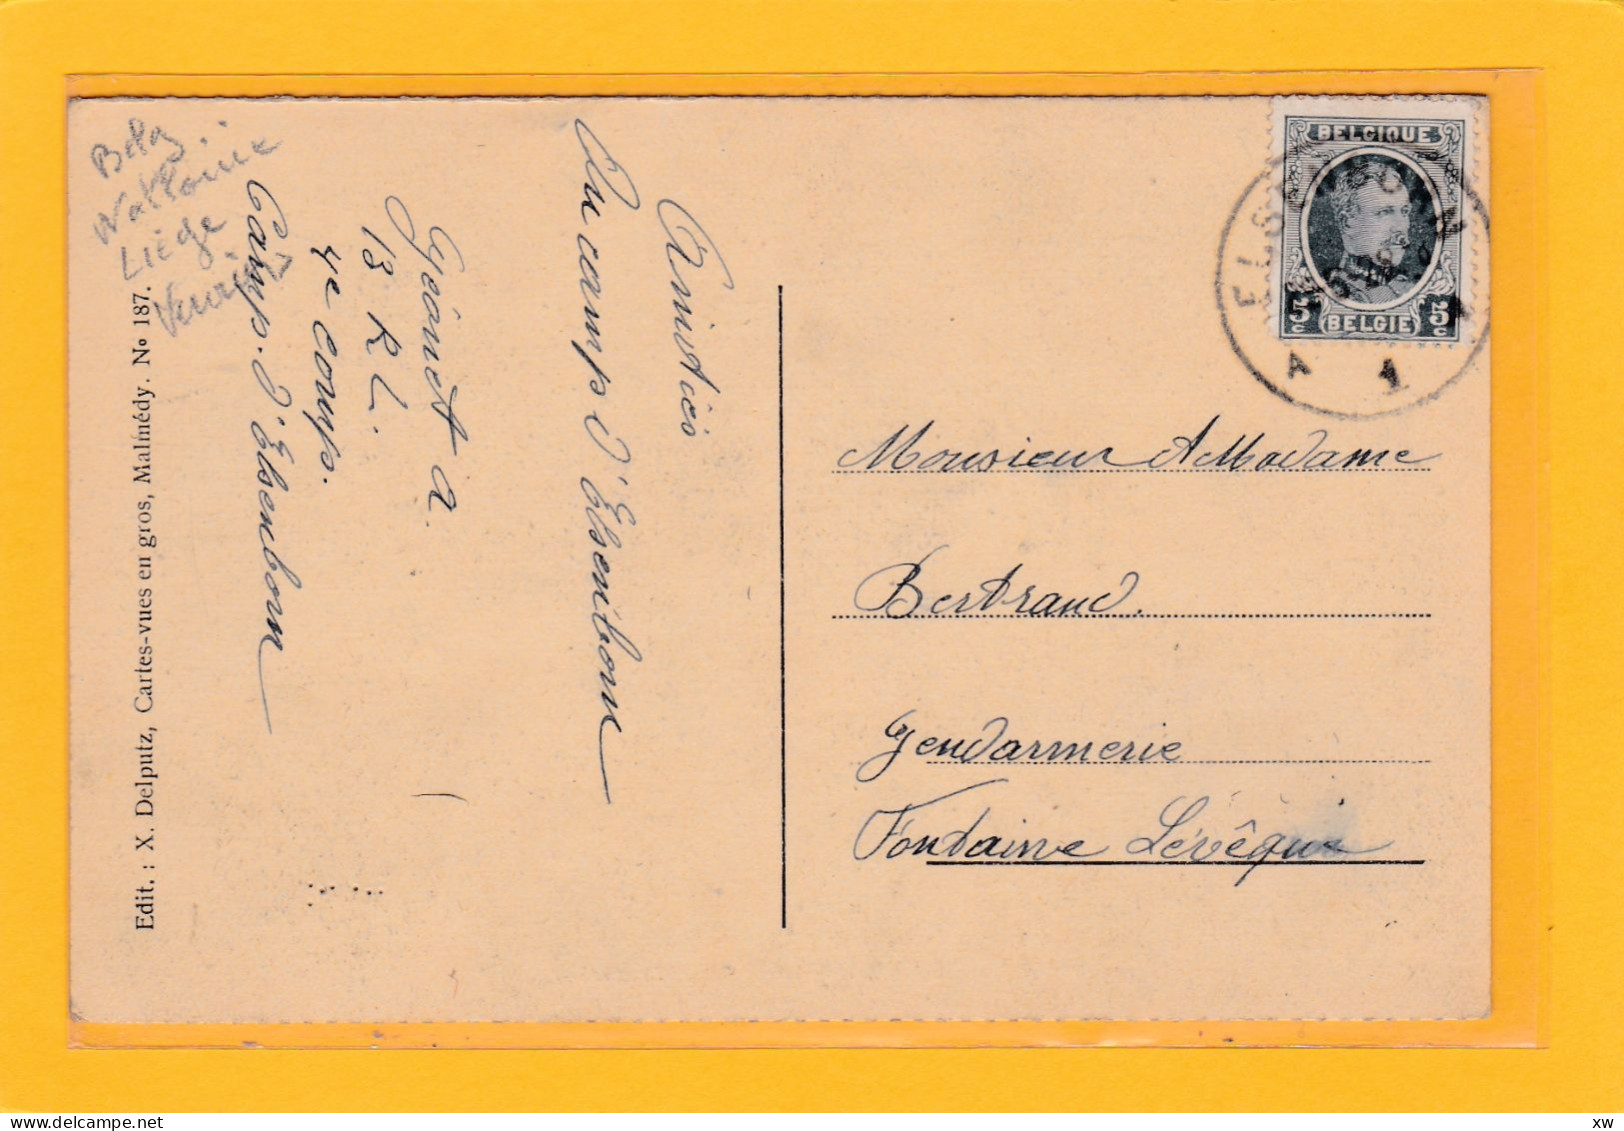 Belg.
Wallonie
Liège
Verviers
Edit. : X. Delputz, Cartes-vues en gros, Malmédy. No 187.
Amitiés
Du camp d'Elsenborn
Géondt A.
13 R L.
4e comp.
Camp. d'Elsenborn
BELGIQUE
5c 5c
BELGIE
ELSENBORN
A 1 A
Monsieur et Madame
Bertrand.
gendarmerie
Fontaine Lévêque
xw